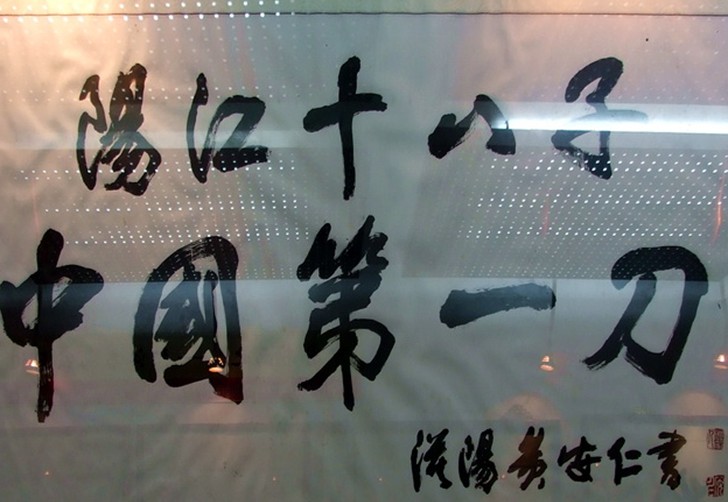 陽江十八子
中國第一刀
漢陽黄安仁書